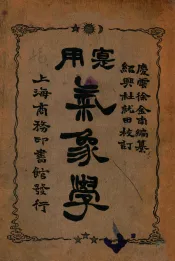 慶雲徐金南編纂
紹興杜就田校訂
實用
氣象學
上海商務印書館發行